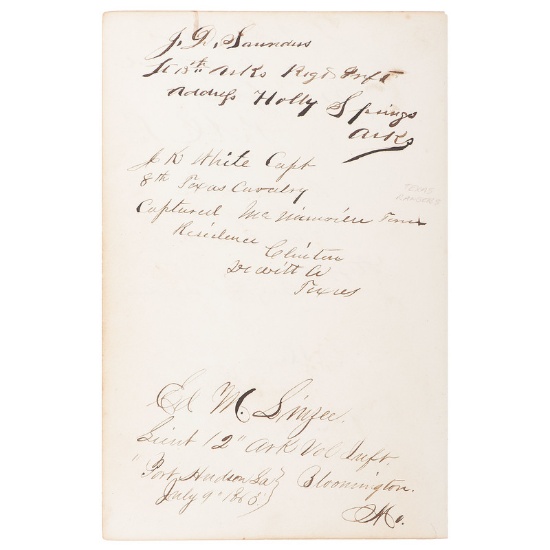 J. D. Saunders
Lt 15th Arks Regt Inft
Address Holly Springs
Arks
J K White Capt
8th Texas Cavalry
Captured McMinnville Tenn
Residence Clinton
De Witt Co
Texas
TEXAS
Ed M.
Lieut 12" Ark Vol Inft.
"Port Hudson La
July 9" 1863" Bloomington.
Mo.